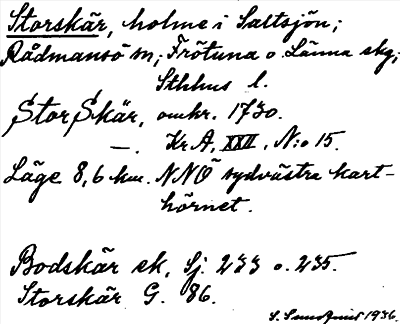 Storskär, holme i Saltsjön;
Rådmansö sn; Frötuna o. Länna skg;
Sthlms l.
Stor Skär, omkr. 1730.
—. Kr A, XXII, N:o 15.
Läge 8,6 km. NNÖ sydvästra kart-
hörnet.
Bodskär ek, Sj. 233 o. 235.
Storskär G. 86.
1936.